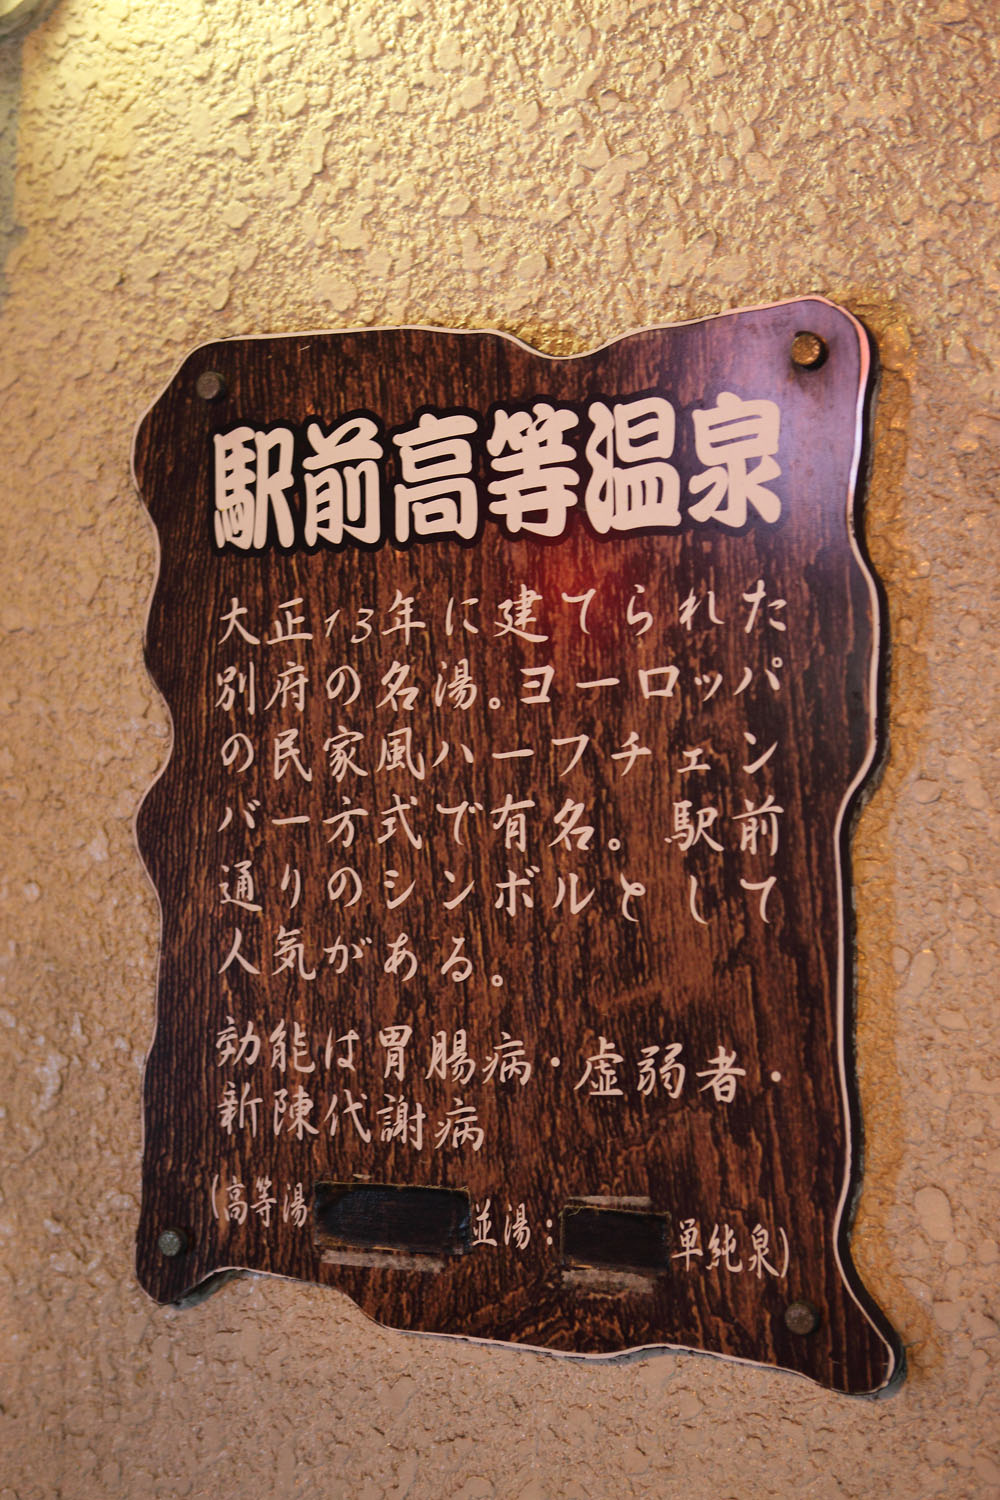 駅前高等温泉
大正13年に建てられた
別府の名湯。ヨーロッパ
の民家風ハーフチェン
バー方式で有名。駅前
通りのシンボルとして
人気がある。
効能は胃腸病・虚弱者・
新陳代謝病
(高等湯 並湯: 単純泉)